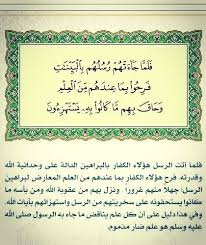 فَلَمَّا جَاءَتْهُمْ رُسُلُهُم بِالْبَيِّنَاتِ
فَرِحُوا بِمَا عِندَهُم مِّنَ الْعِلْمِ
وَحَاقَ بِهِم مَّا كَانُوا بِهِ يَسْتَهْزِءُونَ
فلما أتت الرسل هؤلاء الكفار بالبراهين الدالة على وحدانية الله
وقدرته، فرح الكفار بما عندهم من العلم المعارض لبراهين
الرسل؛ جهلًا منهم غرورا. ونزل بهم من عقوبة الله ومن بأسه ما
كانوا يستحقونه على سخريتهم من الرسل واستهزائهم بآيات الله.
وفي هذا دليل على أن كل علم يناقض ما جاء به الرسول صلى الله
عليه وسلم هو علم ضار مذموم.